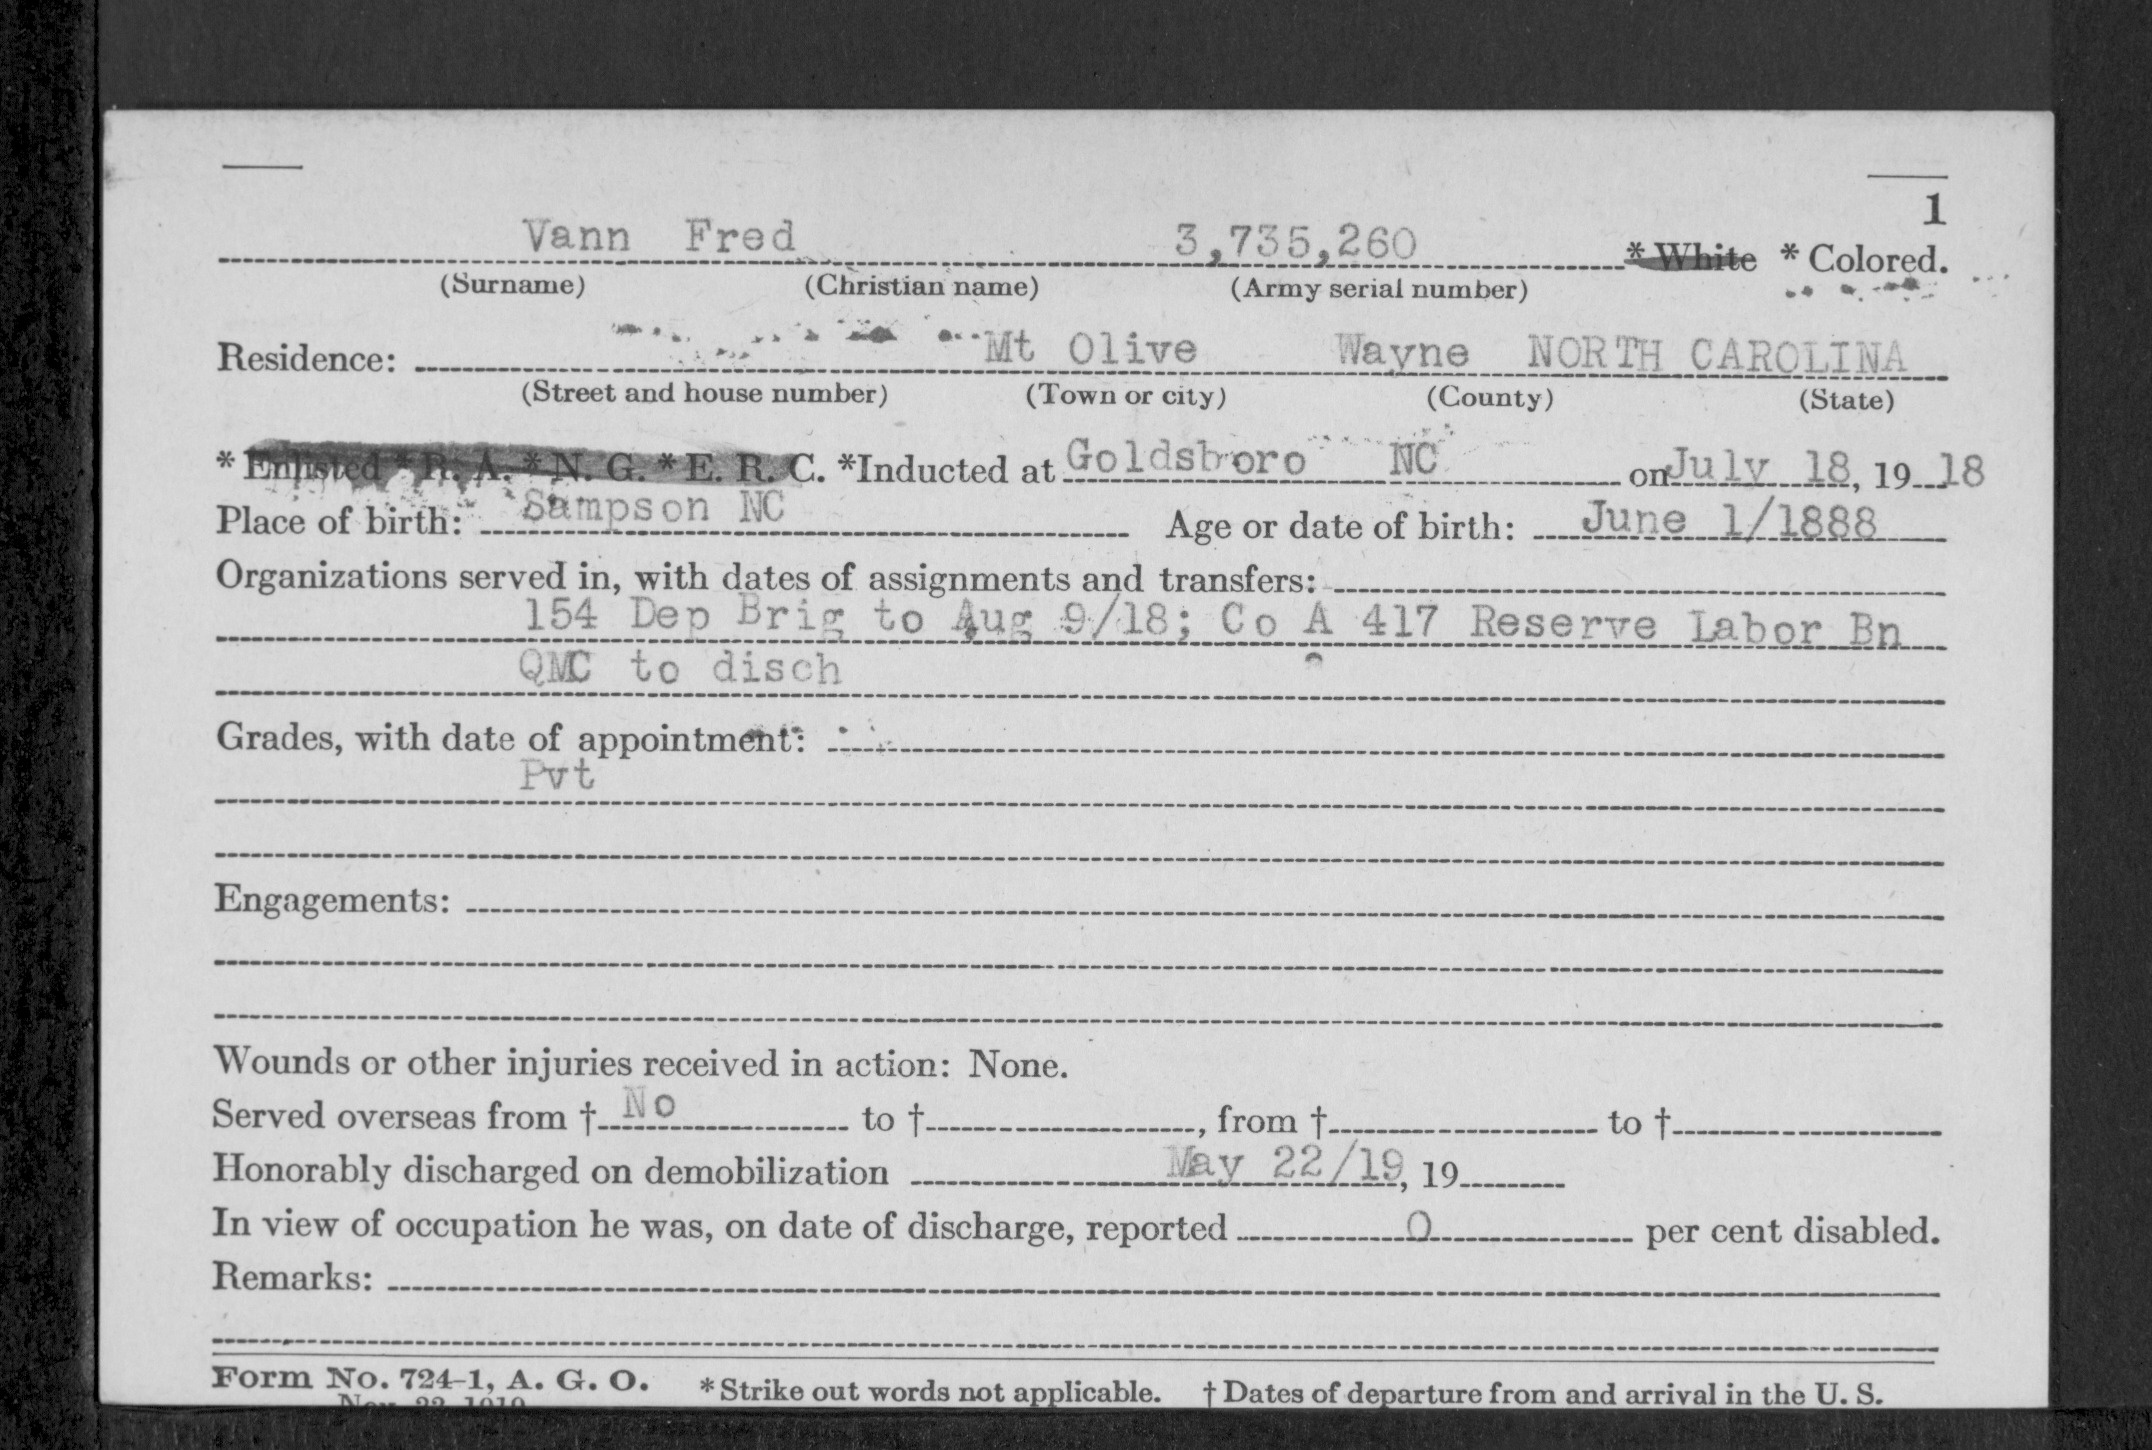 1
Vann Fred 3,735,260 * White * Colored.
(Surname) (Christian name) (Army serial number)
Residence: Mt Olive Wayne NORTH CAROLINA
(Street and house number) (Town or city) (County) (State)
* Enlisted * R. A. * N. G. * E. R. C. *Inducted at Goldsboro NC on July 18, 19 18
Place of birth: Sampson NC Age or date of birth: June 1/1888
Organizations served in, with dates of assignments and transfers:
154 Dep Brig to Aug 9/18; Co A 417 Reserve Labor Bn
QMC to disch
Grades, with date of appointment:
Pvt
Engagements:
Wounds or other injuries received in action: None.
Served overseas from † No to †, from † to †
Honorably discharged on demobilization May 22/19, 19
In view of occupation he was, on date of discharge, reported 0 per cent disabled.
Remarks:
Form No. 724-1, A. G. O. * Strike out words not applicable. † Dates of departure from and arrival in the U. S.
Nov. 22, 1919